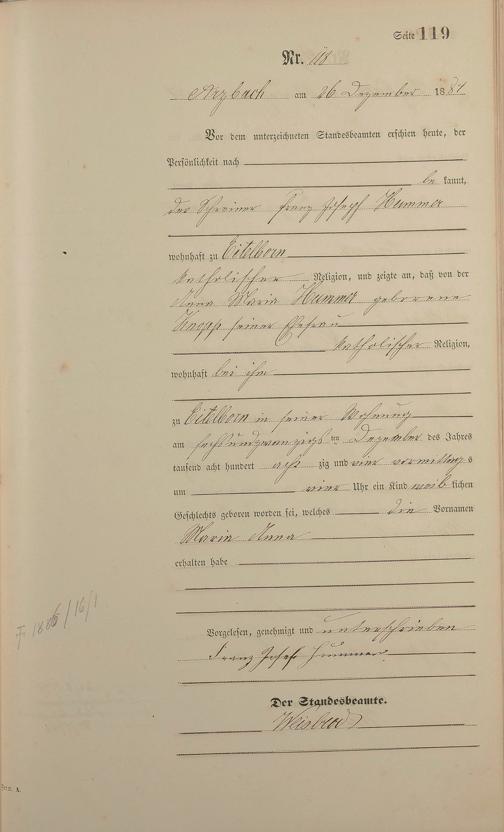 Seite 119
Nr. 118
Arzbach am 26 Dezember 1884
Vor dem unterzeichneten Standesbeamten erschien heute, der
Persönlichkeit nach
be kannt,
der Schreiner Franz Joseph Hummer
wohnhaft zu Eitelborn
katholischer Religion, und zeigte an, daß von der
Anna Maria Hummer geborene
Knopp seiner Ehefrau
katholischer Religion,
wohnhaft bei ihm
zu Eitelborn in seiner Wohnung
am sechsundzwanzigs ten Dezember des Jahres
tausend acht hundert acht zig und vier vormittag s
um vier Uhr ein Kind weib lichen
Geschlechts geboren worden sei, welches die Vornamen
Maria Anna
erhalten habe
Vorgelesen, genehmigt und unterschrieben
Franz Josef Hummer
Der Standesbeamte.
Weisbrod
A.